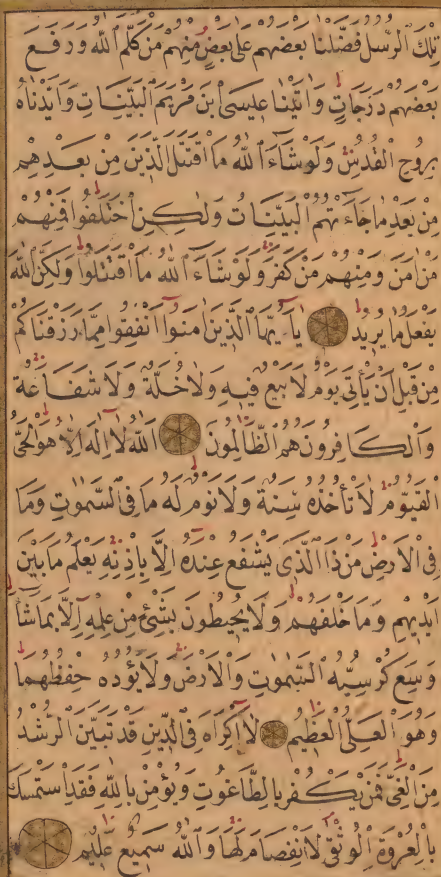 تِلْكَ الرُّسُلُ فَضَّلْنَا بَعْضَهُمْ عَلَى بَعْضٍ مِنْهُمْ مَنْ كَلَّمَ اللّٰهُ وَرَفَعَ
بَعْضَهُمْ دَرَجَاتٍ وَاٰتَيْنَا عِيسَى ابْنَ مَرْيَمَ الْبَيِّنَاتِ وَاَيَّدْنَاهُ
بِرُوحِ الْقُدُسِ وَلَوْ شَآءَ اللّٰهُ مَا اقْتَتَلَ الَّذِينَ مِنْ بَعْدِهِمْ
مِنْ بَعْدِ مَا جَآءَتْهُمُ الْبَيِّنَاتُ وَلٰكِنِ اخْتَلَفُوا فَمِنْهُمْ
مَنْ اٰمَنَ وَمِنْهُمْ مَنْ كَفَرَ وَلَوْ شَآءَ اللّٰهُ مَا اقْتَتَلُوا وَلٰكِنَّ اللّٰهَ
يَفْعَلُ مَا يُرِيدُ يَآ اَيُّهَا الَّذِينَ اٰمَنُوا اَنْفِقُوا مِمَّا رَزَقْنَاكُمْ
مِنْ قَبْلِ اَنْ يَأْتِيَ يَوْمٌ لَا بَيْعٌ فِيهِ وَلَا خُلَّةٌ وَلَا شَفَاعَةٌ
وَالْكَافِرُونَ هُمُ الظَّالِمُونَ اَللّٰهُ لَا اِلٰهَ اِلَّا هُوَ الْحَيُّ
الْقَيُّومُ لَا تَأْخُذُهُ سِنَةٌ وَلَا نَوْمٌ لَهُ مَا فِي السَّمٰوٰتِ وَمَا
فِي الْاَرْضِ مَنْ ذَا الَّذِي يَشْفَعُ عِنْدَهُ اِلَّا بِاِذْنِهِ يَعْلَمُ مَا بَيْنَ
اَيْدِيهِمْ وَمَا خَلْفَهُمْ وَلَا يُحِيطُونَ بِشَيْءٍ مِنْ عِلْمِهِ اِلَّا بِمَا شَآءَ
وَسِعَ كُرْسِيُّهُ السَّمٰوٰتِ وَالْاَرْضَ وَلَا يَؤُدُهُ حِفْظُهُمَا
وَهُوَ الْعَلِيُّ الْعَظِيمُ لَا اِكْرَاهَ فِي الدِّينِ قَدْ تَبَيَّنَ الرُّشْدُ
مِنَ الْغَيِّ فَمَنْ يَكْفُرْ بِالطَّاغُوتِ وَيُؤْمِنْ بِاللّٰهِ فَقَدِ اسْتَمْسَكَ
بِالْعُرْوَةِ الْوُثْقٰى لَا انْفِصَامَ لَهَا وَاللّٰهُ سَمِيعٌ عَلِيمٌ